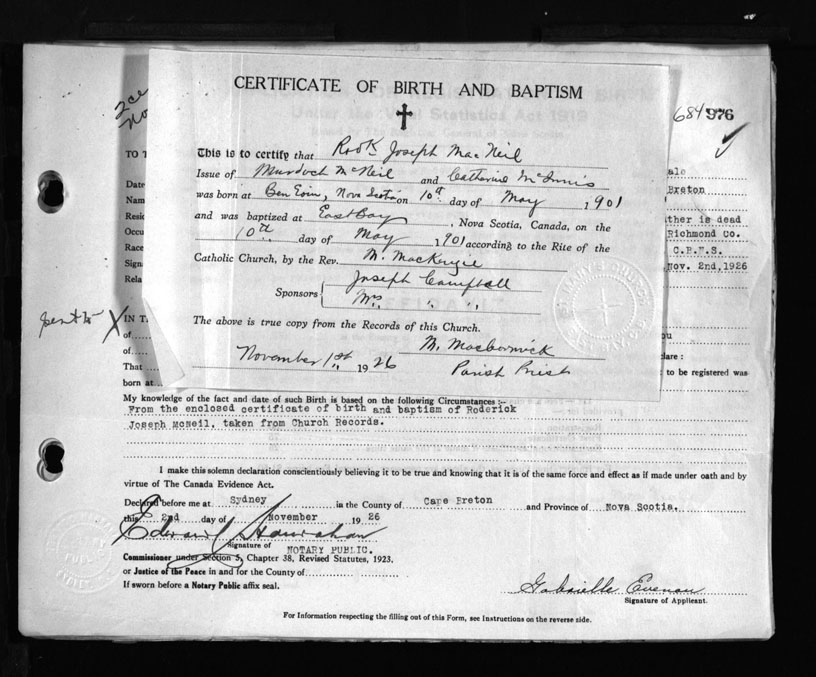 CERTIFICATE OF BIRTH AND BAPTISM
684 976
This is to certify that Rodk Joseph MacNeil
Issue of Murdoch McNeil and Catherine McInnis
was born at Ben Eoin, Nova Scotia on 10th day of May 1901
and was baptized at East Bay, Nova Scotia, Canada, on the
10th day of May 1901 according to the Rite of the
Catholic Church, by the Rev. M. MacKenzie
Joseph Campbell
Sponsors
Mrs " "
The above is true copy from the Records of this Church.
M. MacCormick
November 1st, 1926 Parish Priest
TO T
Date
Nam
Resid
Occu
Race
Sign
Rela
IN T
of
of
That
born at
ale
Breton
ther is dead
Richmond Co.
C.B.N.S.
Nov. 2nd, 1926
ou
lare :
to be registered was
My knowledge of the fact and date of such Birth is based on the following Circumstances :—
From the enclosed certificate of birth and baptism of Roderick
Joseph McNeil, taken from Church Records.
I make this solemn declaration conscientiously believing it to be true and knowing that it is of the same force and effect as if made under oath and by
virtue of The Canada Evidence Act.
Declared before me at Sydney in the County of Cape Breton and Province of Nova Scotia.
this 2nd day of November 1926
Signature of NOTARY PUBLIC.
Commissioner under Section 5, Chapter 38, Revised Statutes, 1923.
or Justice of the Peace in and for the County of
If sworn before a Notary Public affix seal.
Signature of Applicant.
For Information respecting the filling out of this Form, see Instructions on the reverse side.